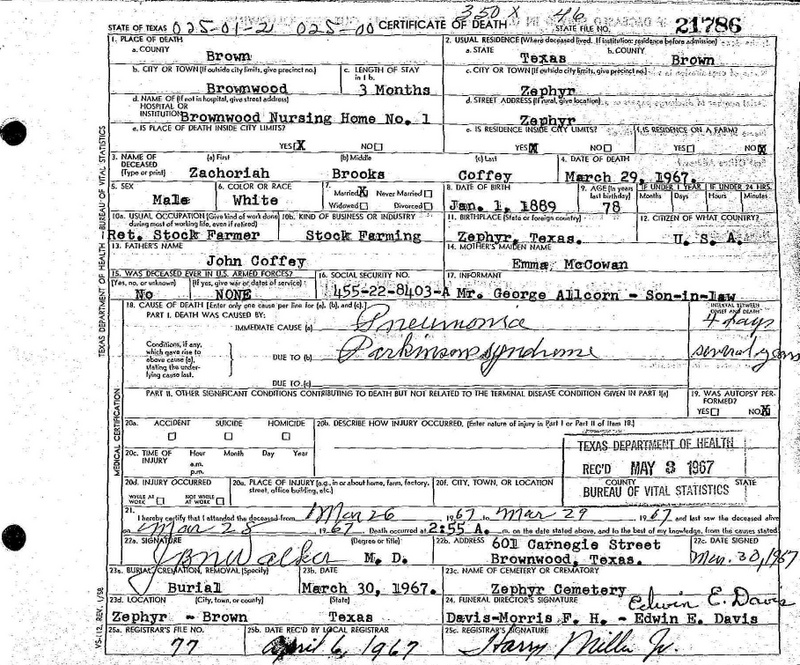 350 X 46
STATE OF TEXAS 025-01-2 025-00 CERTIFICATE OF DEATH STATE FILE NO. 21786
1. PLACE OF DEATH 2. USUAL RESIDENCE (Where deceased lived. If institution: residence before admission)
a. COUNTY a. STATE b. COUNTY
Brown Texas Brown
b. CITY OR TOWN (If outside city limits, give precinct no.) c. LENGTH OF STAY in 1 b. c. CITY OR TOWN (If outside city limits, give precinct no.)
Brownwood 3 Months Zephyr
d. NAME OF (If not in hospital, give street address) d. STREET ADDRESS (If rural, give location)
HOSPITAL OR
INSTITUTION Brownwood Nursing Home No. 1 Zephyr
e. IS PLACE OF DEATH INSIDE CITY LIMITS? e. IS RESIDENCE INSIDE CITY LIMITS? f. IS RESIDENCE ON A FARM?
YES X NO YES X NO YES NO X
3. NAME OF DECEASED (a) First (b) Middle (c) Last 4. DATE OF DEATH
(Type or print) Zachoriah Brooks Coffey March 29, 1967.
5. SEX 6. COLOR OR RACE 7. Married X Never Married 8. DATE OF BIRTH 9. AGE (In years last birthday) IF UNDER 1 YEAR IF UNDER 24 HRS.
Months Days Hours Minutes
Male White Widowed Divorced Jan. 1, 1889 78
10a. USUAL OCCUPATION (Give kind of work done during most of working life, even if retired) 10b. KIND OF BUSINESS OR INDUSTRY 11. BIRTHPLACE (State or foreign country) 12. CITIZEN OF WHAT COUNTRY?
Ret. Stock Farmer Stock Farming Zephyr, Texas. U. S. A.
13. FATHER'S NAME 14. MOTHER'S MAIDEN NAME
John Coffey Emma McCowan
15. WAS DECEASED EVER IN U.S. ARMED FORCES? 16. SOCIAL SECURITY NO. 17. INFORMANT
(Yes, no, or unknown) (If yes, give war or dates of service)
No NONE 455-22-8403-A Mr. George Allcorn - Son-in-law
18. CAUSE OF DEATH [Enter only one cause per line for (a), (b), and (c).] INTERVAL BETWEEN ONSET AND DEATH
PART I. DEATH WAS CAUSED BY:
IMMEDIATE CAUSE (a) Pneumonia 4 days
Conditions, if any, which gave rise to above cause (a), stating the underlying cause last.
DUE TO (b) Parkinsons syndrome several years
DUE TO (c)
PART II. OTHER SIGNIFICANT CONDITIONS CONTRIBUTING TO DEATH BUT NOT RELATED TO THE TERMINAL DISEASE CONDITION GIVEN IN PART I(a) 19. WAS AUTOPSY PERFORMED?
YES NO X
20a. ACCIDENT SUICIDE HOMICIDE 20b. DESCRIBE HOW INJURY OCCURRED. (Enter nature of injury in Part I or Part II of Item 18.)
20c. TIME OF INJURY Hour Month Day Year
a.m.
p.m.
TEXAS DEPARTMENT OF HEALTH
REC'D MAY 3 1967
BUREAU OF VITAL STATISTICS
20d. INJURY OCCURRED 20e. PLACE OF INJURY (e.g., in or about home, farm, factory, street, office building, etc.) 20f. CITY, TOWN, OR LOCATION COUNTY STATE
WHILE AT WORK NOT WHILE AT WORK
21. I hereby certify that I attended the deceased from Mar 26 1967 to Mar 29 1967 and last saw the deceased alive
on Mar 28 1967 Death occurred at 2:55 A. m. on the date stated above, and to the best of my knowledge, from the causes stated.
22a. SIGNATURE (Degree or title) 22b. ADDRESS 22c. DATE SIGNED
Walker M. D. 601 Carnegie Street
Brownwood, Texas. Mar. 30, 1967
23a. BURIAL, CREMATION, REMOVAL (Specify) 23b. DATE 23c. NAME OF CEMETERY OR CREMATORY
Burial March 30, 1967. Zephyr Cemetery
23d. LOCATION (City, town, or county) (State) 24. FUNERAL DIRECTOR'S SIGNATURE Edwin E. Davis
Zephyr - Brown Texas Davis-Morris F. H. - Edwin E. Davis
25a. REGISTRAR'S FILE NO. 25b. DATE REC'D BY LOCAL REGISTRAR 25c. REGISTRAR'S SIGNATURE
77 April 6, 1967 Harry Miller Jr.
TEXAS DEPARTMENT OF HEALTH — BUREAU OF VITAL STATISTICS
MEDICAL CERTIFICATION
VS-112, REV. 1/58